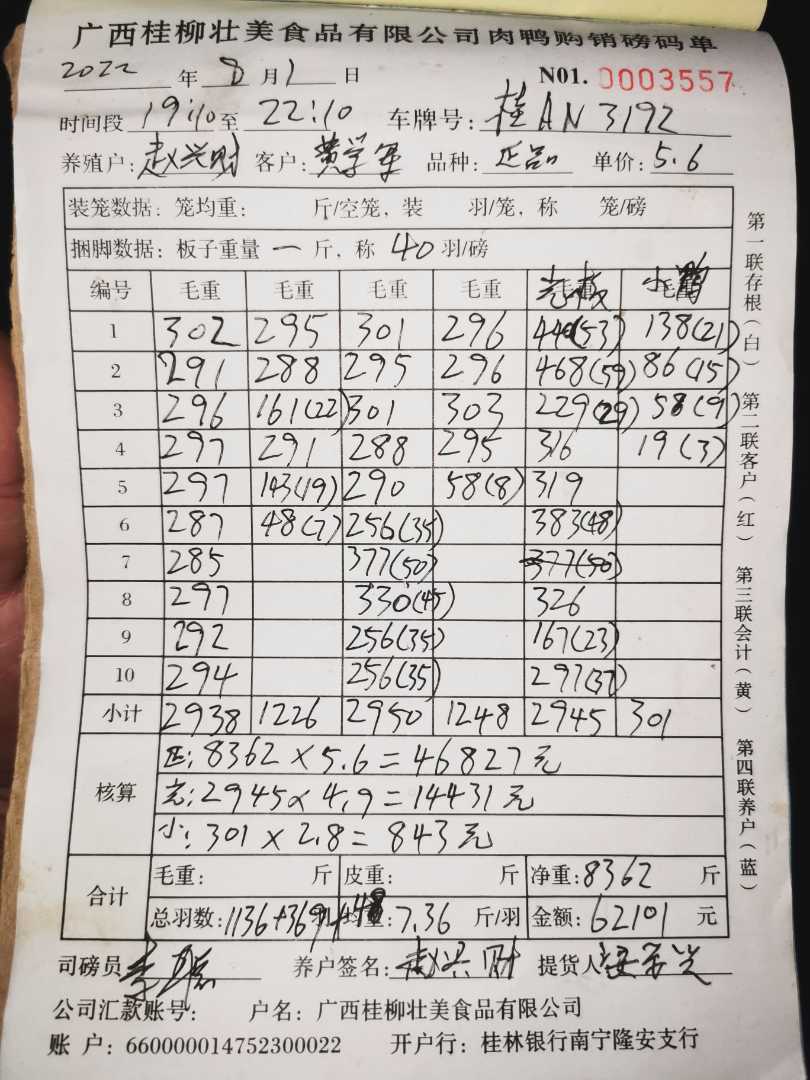 广西桂柳壮美食品有限公司肉鸭购销磅码单
2022 年 8 月 1 日 N01. 0003557
时间段 19:10 至 22:10 车牌号: 桂AN3192
养殖户: 赵兴财 客户: 黄学军 品种: 正品 单价: 5.6
装笼数据: 笼均重: 斤/空笼, 装 羽/笼, 称 笼/磅
捆脚数据: 板子重量 一 斤, 称 40 羽/磅
编号 毛重 毛重 毛重 毛重 毛重
1 302 295 301 296 440(53) 138(21)
2 291 288 295 296 468(59) 86(15)
3 296 161(22) 301 303 229(29) 58(9)
4 297 291 288 295 316 19(3)
5 297 143(19) 290 58(8) 319
6 287 48(7) 256(35) 383(48)
7 285 377(50) 377(50)
8 297 330(45) 326
9 292 256(35) 167(23)
10 294 256(35) 297(37)
小计 2938 1226 2950 1248 2945 301
核算
正: 8362 × 5.6 = 46827元
2945 × 4.9 = 14431元
小: 301 × 2.8 = 843元
合计
毛重: 斤 皮重: 斤 净重: 8362 斤
总羽数: 1136+369+48 7.36 斤/羽 金额: 62101 元
司磅员 养户签名: 赵兴财 提货人
公司汇款账号: 户名: 广西桂柳壮美食品有限公司
账 户: 660000014752300022 开户行: 桂林银行南宁隆安支行
第一联存根(白)
第二联客户(红)
第三联会计(黄)
第四联养户(蓝)